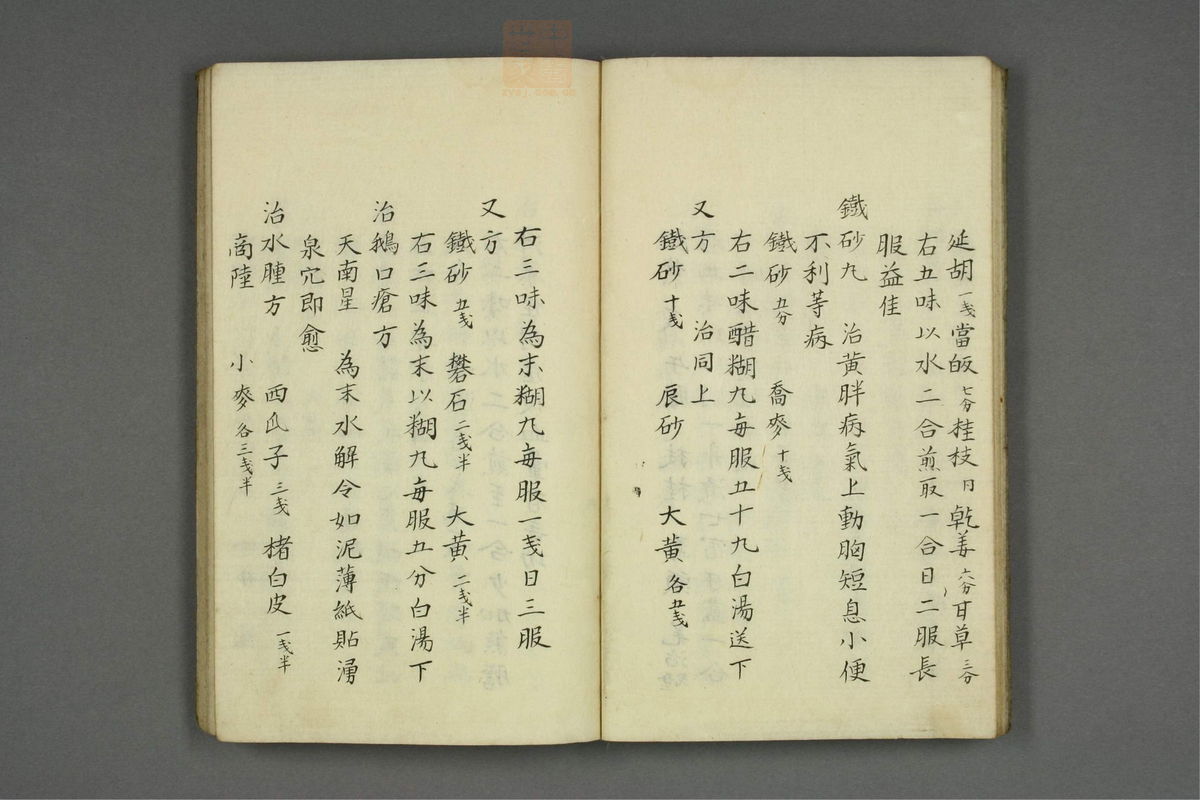 延胡一戔當皈七分桂枝日乾姜六分甘草三分
右五味以水二合煎取一合日二服長
服益佳
鐵砂丸 治黃胖病氣上動胸短息小便
不利等病
鐵砂五分 喬麥十戔
右二味醋糊丸每服五十丸白湯送下
又方 治同上
鐵砂十戔 辰砂 大黃各五戔
右三味為末糊丸每服一戔日三服
又方
鐵砂五戔 礬石二戔半 大黃二戔半
右三味為末以糊丸每服五分白湯下
治鵝口瘡方
天南星 為末水解令如泥薄紙貼湧
泉穴即愈
治水腫方 西瓜子三戔 楮白皮一戔半
商陸 小麥各三戔半